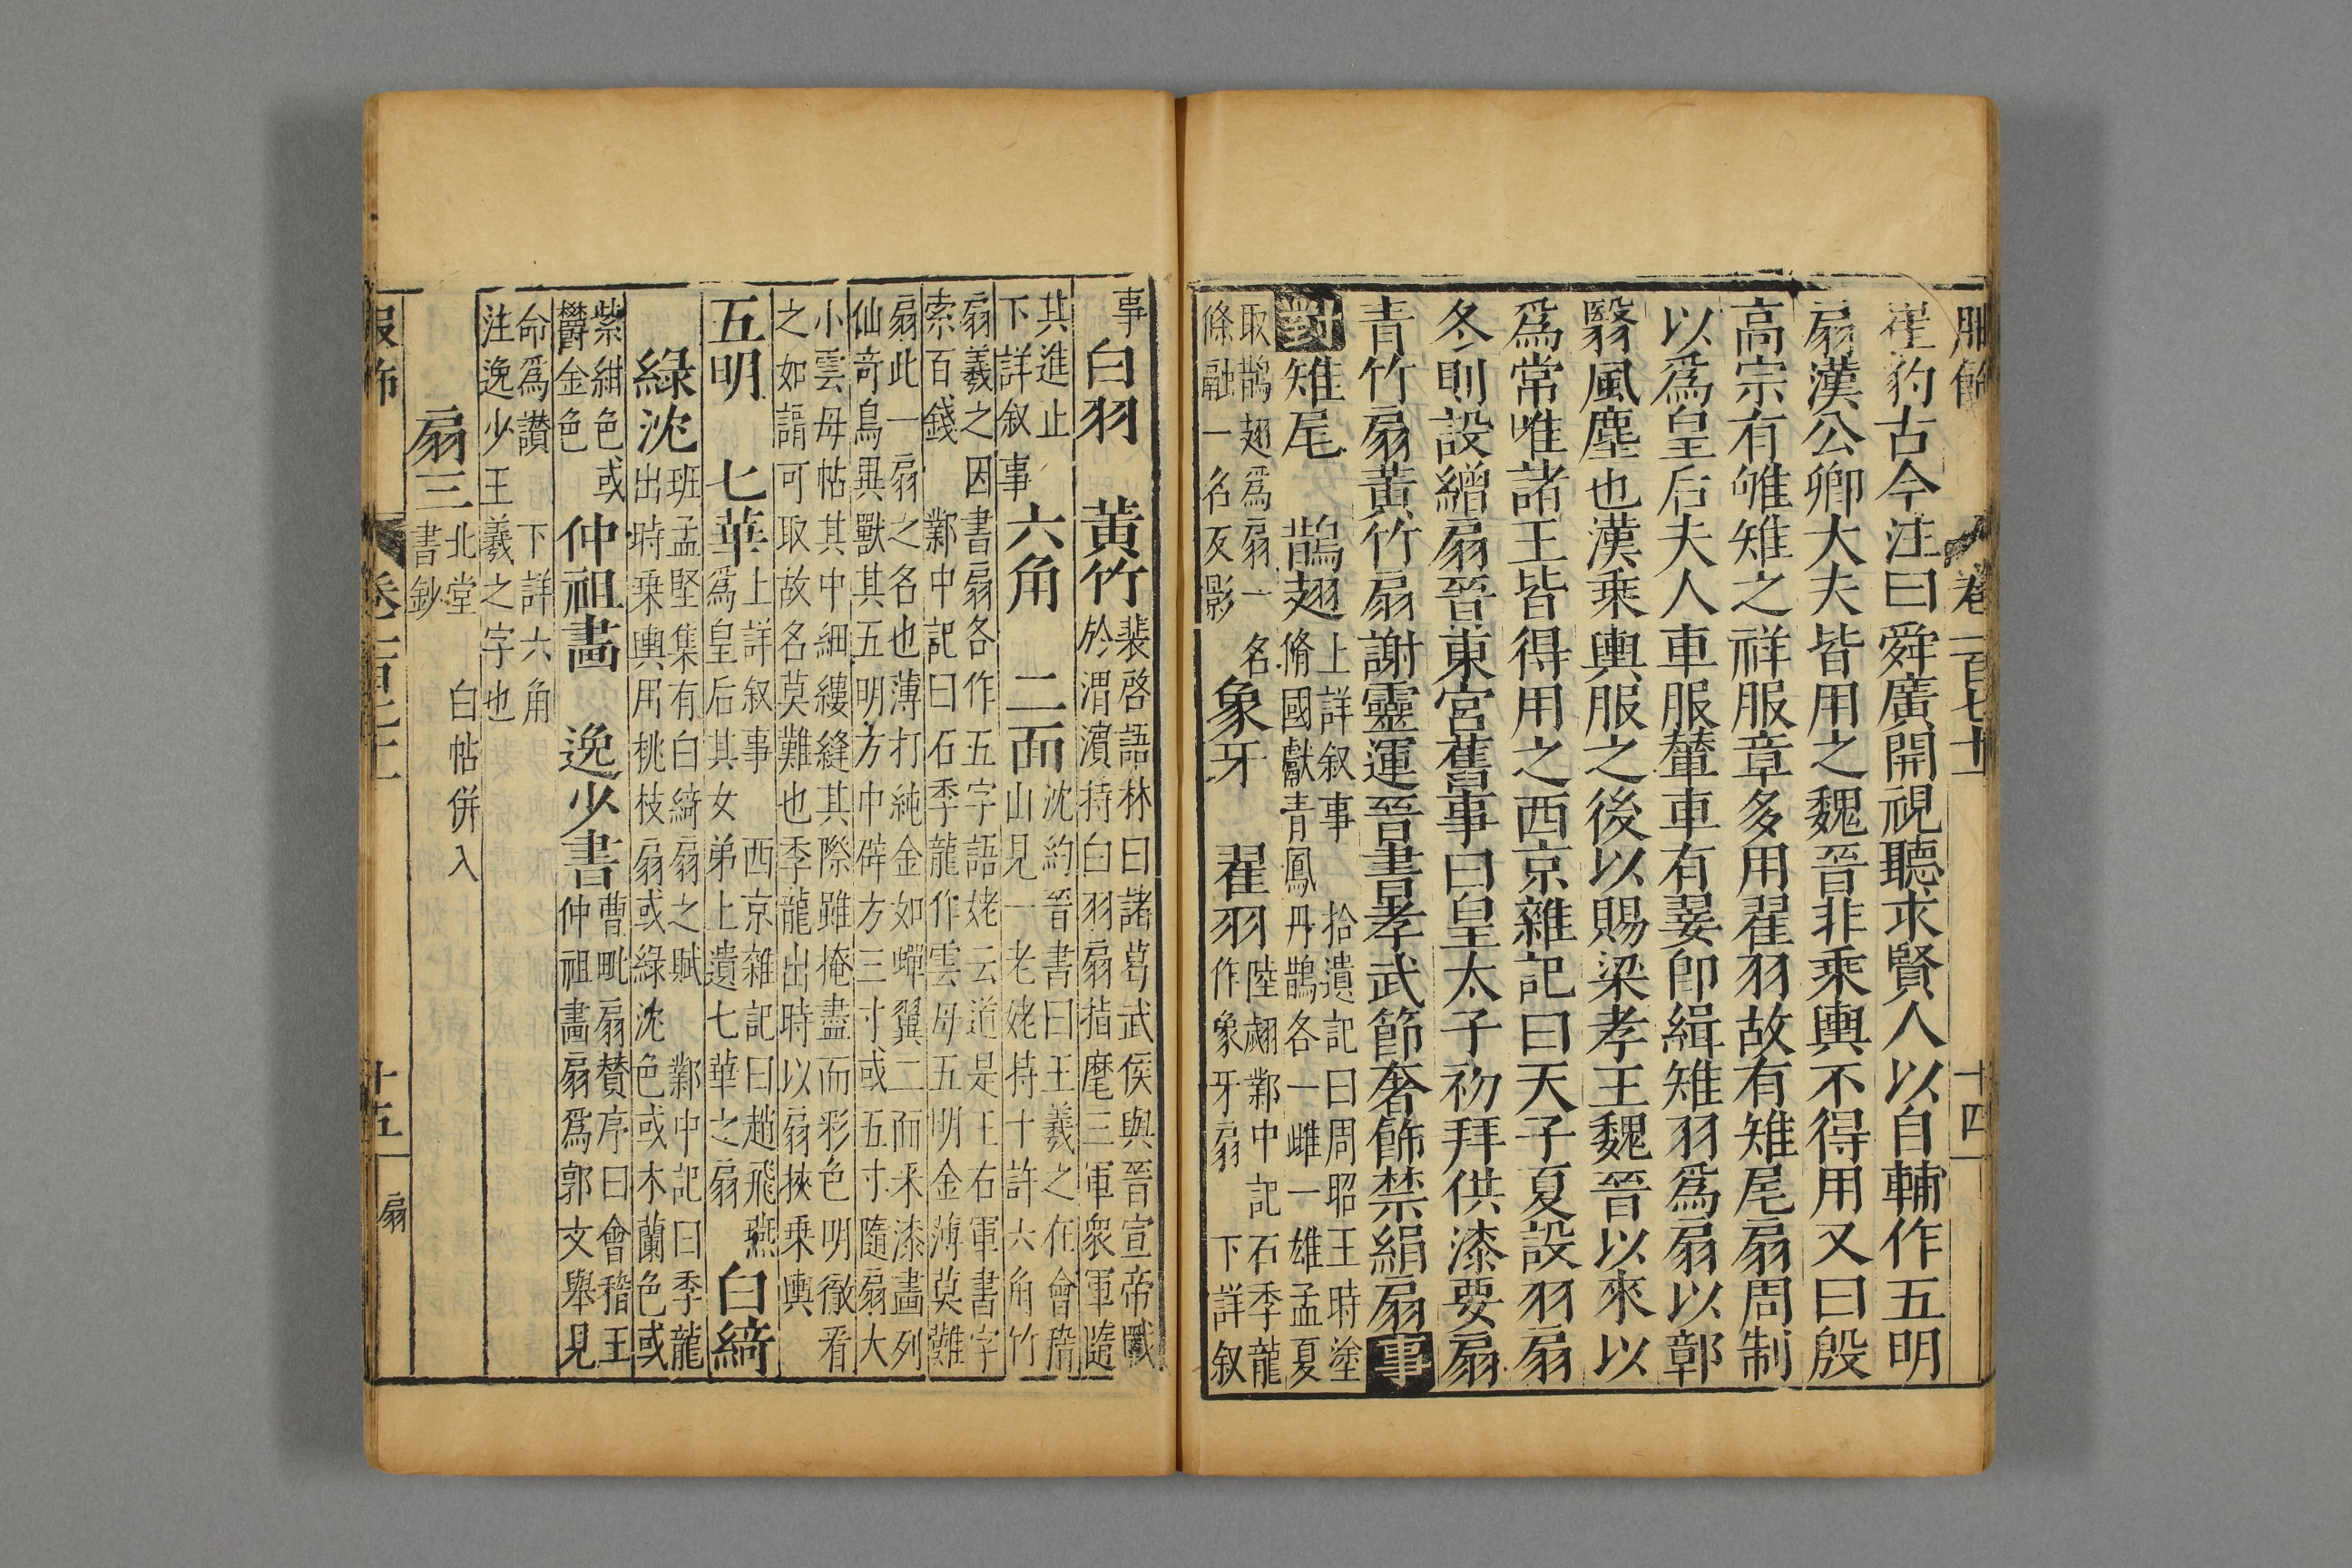 服飾 卷一百七十 十四
崔豹古今注曰舜廣開視聽求賢人以自輔作五明
扇漢公卿大夫皆用之魏晉非乘輿不得用又曰殷
高宗有雊雉之祥服章多用翟羽故有雉尾扇周制
以爲皇后夫人車服輦車有翣卽緝雉羽爲扇以鄣
翳風塵也漢乘輿服之後以賜梁孝王魏晉以來以
爲常唯諸王皆得用之西京雜記曰天子夏設羽扇
冬則設繒扇晉東宮舊事曰皇太子初拜供漆要扇
青竹扇黃竹扇謝靈運晉書孝武節奢飾禁絹扇事
對雉尾 鵲翅上詳叙事 拾遺記曰周昭王時塗
脩國獻青鳳丹鵲各一雌一雄孟夏
取鵲翅爲扇一名
條融一名灰影
象牙 翟羽陸翽鄴中記石季龍
作象牙扇 下詳叙
事
白羽 黃竹裴啓語林曰諸葛武侯與晉宣帝戰
於渭濵持白羽扇指麾三軍衆軍隨
其進止
下詳叙事
六角 二面沈約晉書曰王羲之在會稽
山見一老姥持十許六角竹
扇羲之因書扇各作五字語姥云道是王右軍書字
索百錢 鄴中記曰石季龍作雲母五明金薄莫難
扇此一扇之名也薄打純金如蟬翼二面釆漆畫列
仙奇鳥異獸其五明方中辟方三寸或五寸隨扇大
小雲母帖其中細縷縫其際雖掩盡而彩色明徹看
之如謂可取故名莫難也季龍出時以扇挾乘輿
五明 七華上詳叙事 西京雜記曰趙飛燕
爲皇后其女弟上遺七華之扇
白綺
綠沈班孟堅集有白綺扇之賦 鄴中記曰季龍
出時乘輿用桃枝扇或綠沈色或木蘭色或
紫紺色或
欝金色
仲祖畵 逸少書曹毗扇賛序曰會稽王
仲祖畵扇爲郭文舉見
命爲讃 下詳六角
注逸少王羲之字也
扇三北堂
書鈔
白帖併入
服飾 卷一百七十 十五 扇